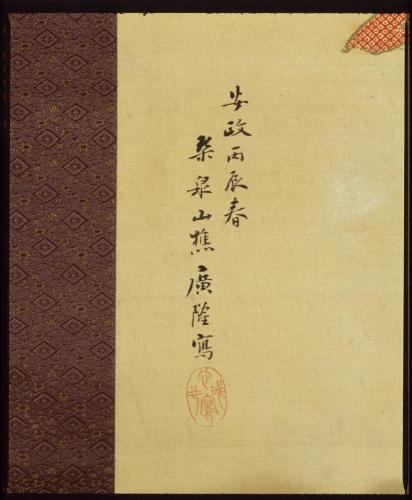 安政丙辰春
桒泉山樵廣隆寫